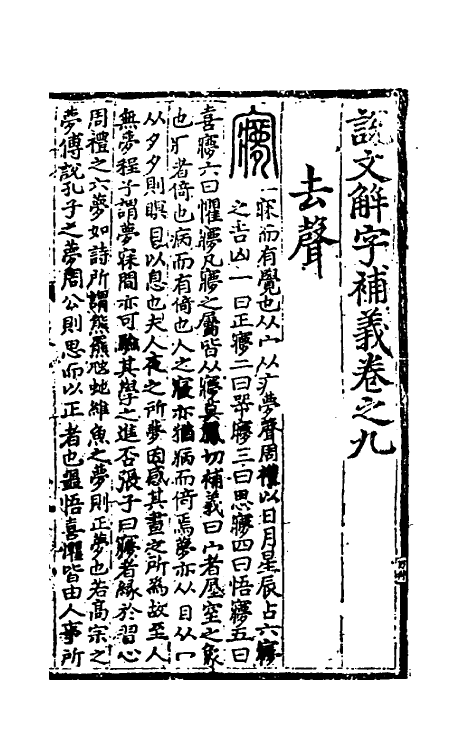 說文解字補義卷之九
去聲
㝱
寐而有覺也从宀从疒夢聲周禮以日月星辰占六㝱
之吉凶一曰正㝱二曰咢㝱三曰思㝱四曰悟㝱五曰
喜㝱六曰懼㝱凡㝱之屬皆从㝱莫鳳切補義曰宀者屋室之象
也疒者倚也病而有倚也人之寢亦猶病而倚焉夢亦从目从冖
从夕夕則瞑目以息也夫人夜之所夢因感其晝之所為故至人
無夢程子謂夢寐間亦可驗其學之進否張子曰㝱者緣於習心
周禮之六夢如詩所謂熊羆虺蛇維魚之夢則正夢也若高宗之
夢傅說孔子之夢周公則思而以正者也噩悟喜懼皆由人事所